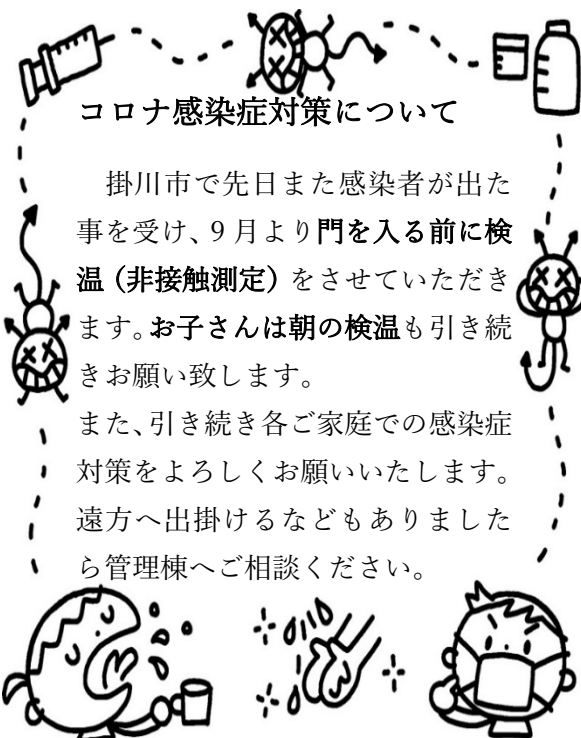 コロナ感染症対策について
　掛川市で先日また感染者が出た
事を受け、9月より門を入る前に検
温（非接触測定）をさせていただき
ます。お子さんは朝の検温も引き続
きお願い致します。
また、引き続き各ご家庭での感染症
対策をよろしくお願いいたします。
遠方へ出掛けるなどもありました
ら管理棟へご相談ください。